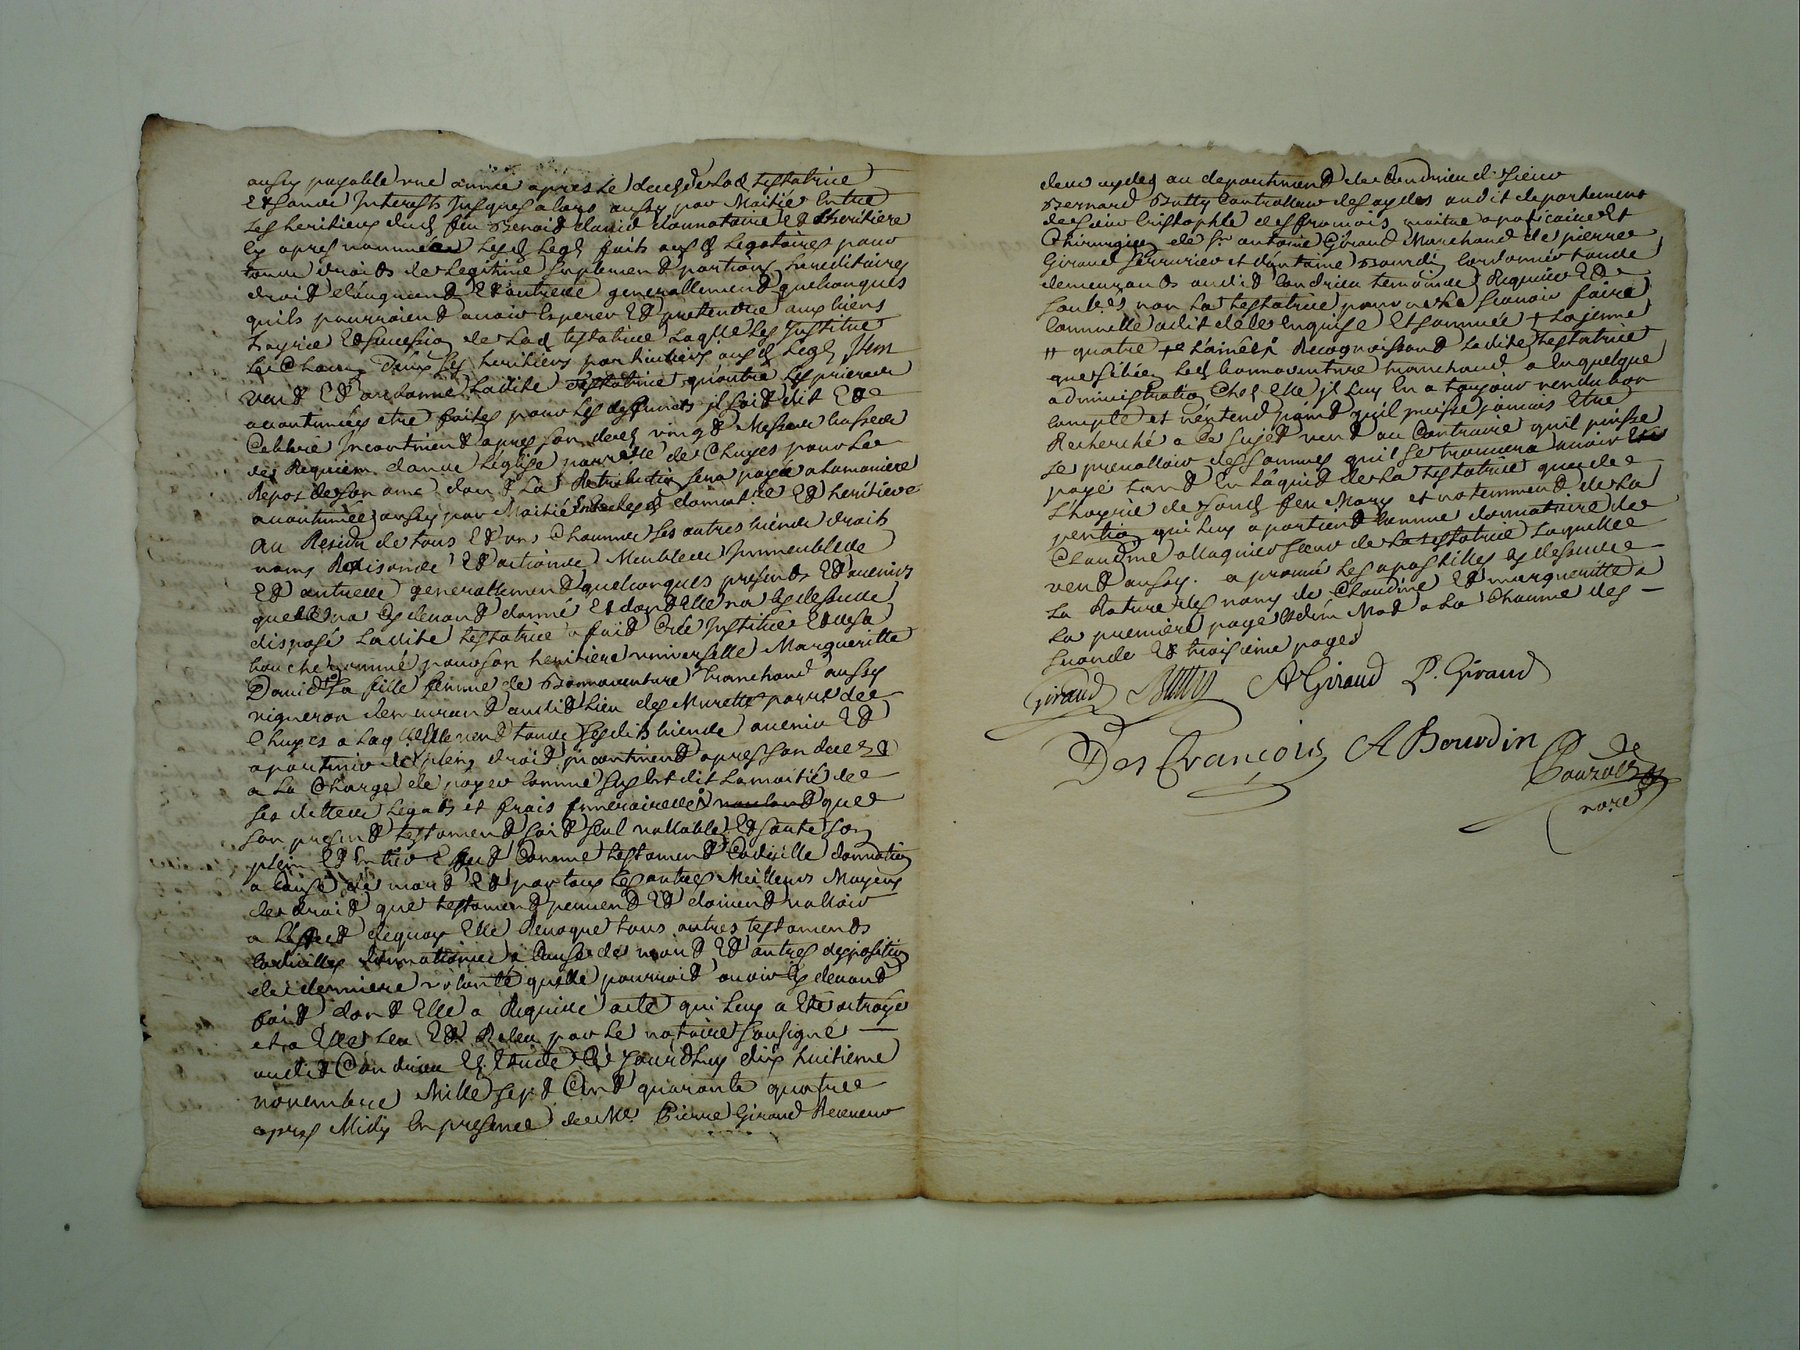 aussy payable une année apres le deces de lad testatrice
Et sans Interests Jusques alors aussy par Moitié Entre
Les heritiers dud feu Benoid david donnataire Et heritiere
cy apres nommée Lesd Legs faits ausd Legataires pour
tous droits de Legitime suplement portions hereditaires
droit d'augment Et autres generallement quelconques
quils pourroient avoir Esperer Et pretendre aux biens
hoyrie Et succession de Lad testatrice Laqlle Les Institue
Et Chacun d'eux ses heritiers particuliers ausd Legs Item
veut Et ordonne Ladite testatrice qu'outre Les prieres
accoutumées etre faites pour Les deffunts il soit dit Et
Celebré Incontinent apres son deces vingt Messes basses
de Requiem dans L'eglise parrelle de Chuyes pour Le
Repos de son ame dont La Retribution sera payée a La maniere
accoutumée aussy par Moitié Entre Lesd donnatre Et heritiere
au Residu de tous Et uns Chacuns Les autres biens droits
noms Raisons Et actions Meubles Immeubles
Et autres generallement quelconques presents Et avenirs
quelle n'a cy devant donné Et dont Elle na cy dessus
disposé Ladite testatrice a fait Crée Institue Et de sa
bouche nommé pour son heritiere universelle Margueritte
David sa fille femme de Bonnaventure tranchand aussy
vigneron demeurant audit Lieu des Murettes parr de
Chuyes a Laqlle Elle veut tous Lesdits biens avenir Et
apartenir de plein droit incontinent apres son deces
a La Charge de payer Comme sus Est dit La moitié de
ses dettes Legats et frais funeraires voulant que
son present testament soit seul vallable Et sorte son
plein Et Entier Effet Comme testament Codicille donnation
a Cause de mort Et par tous Les autres Meilleurs Moyens
de droit que testament peuvent Et doivent valloir
a L'effet dequoy Elle Revoque tous autres testaments
Codicilles donnations a Cause de mort Et autres disposition
de derniere volonté quelle pourroit avoir cy devant
fait dont Elle a Requis acte qui Luy a Eté octroyé
et a Elle Leu Et Releu par Le notaire soussigné
audit Condrieu Et Etude Ce Jourdhuy dix huitieme
novembre Mille sept Cent quarante quatre
apres Midy En presence de Me Pierre Giraud Receveur
des aydes au departement de Condrieu de sieur
Bernard Butty Controlleur des aydes audit departement
de sieur Cristophle des françois maitre apoticaire Et
Chirurgien de Sr antoine Giraud Marchand de pierre
Giraud serrurier et d'antoine Bourdin Cordonnier tous
demeurants audit Condrieu temoins Requis Et
soub.és non La testatrice pour ne Le sçavoir faire
Comme elle a dit de ce Enquise Et sommée + La jeune
++ quatre + L'ainée Recognoissant Ladite testatrice
que si bien Led bonnaventure tranchand a Eu quelque
administration Chez Elle il Luy En a toujour rendu bon
Compte et n'entend point qu'il puisse jamais Etre
Recherché a Ce sujet veut au Contraire qu'il puisse
se prevalloir des sommes qu'il se trouvera avoir
payé tant En L'aquit de La testatrice que de
L'hoyrie de soud feu Mary et notemment de La
pention qui Luy apartient Comme donnataire de
Claudine allaguier soeur de La testatrice Laquelle
veut aussy. aprouvé Les apostilles cy dessus
La Rature des noms de Claudine Et margueritte a
La premiere page Et d'un Mot a La Chacune des
seconde Et troisieme pages
Giraud Butty A Giraud P. Giraud
Des François A Bourdin
nore